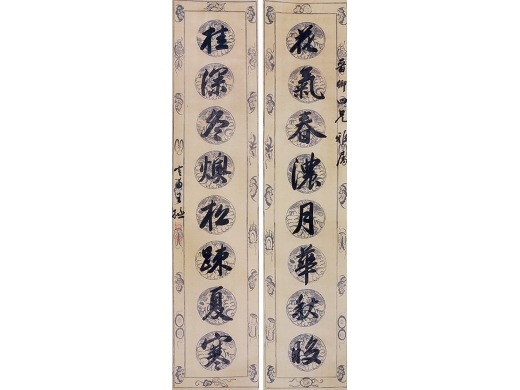 晉卿四兄雅屬
花氣春濃月華秋
桂深冬燠松踈夏寒
王